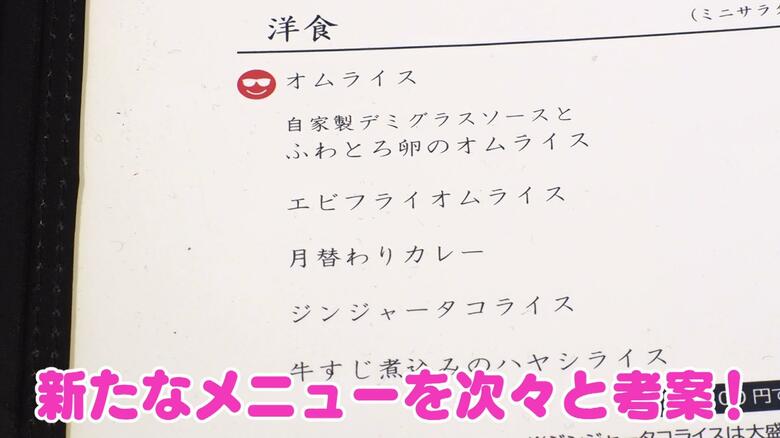 洋食
(ミニサラダ
オムライス
自家製デミグラスソースと
ふわとろ卵のオムライス
エビフライオムライス
月替わりカレー
ジンジャータコライス
牛すじ煮込みのハヤシライス
00円
ジンジャータコライスは大盛
新たなメニューを次々と考案！